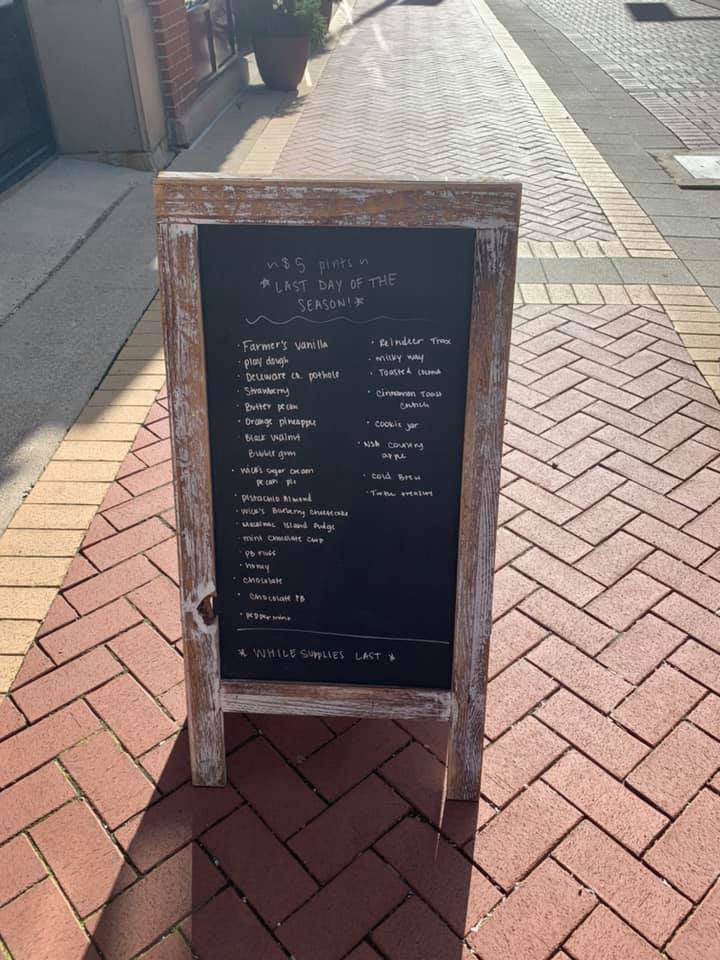 ~$5 pints~
*LAST DAY OF THE
SEASON!*
· Farmer's vanilla
· play dough
· Delaware co. pothole
· Strawberry
· Butter pecan
· Orange pineapple
· Black walnut
Bubble gum
· Nick's sugar cream
pecan pie
· pistachio Almond
· Nick's Blueberry Cheesecake
· Mackinac Island Fudge
· mint chocolate chip
· PB
· honey
· chocolate
· chocolate PB
· peppermint
· Reindeer Trax
· milky way
· Toasted coconut
· Cinnamon Toast
Crunch
· cookie jar
· country
apple
· cold Brew
· Turtle
* WHILE SUPPLIES LAST *